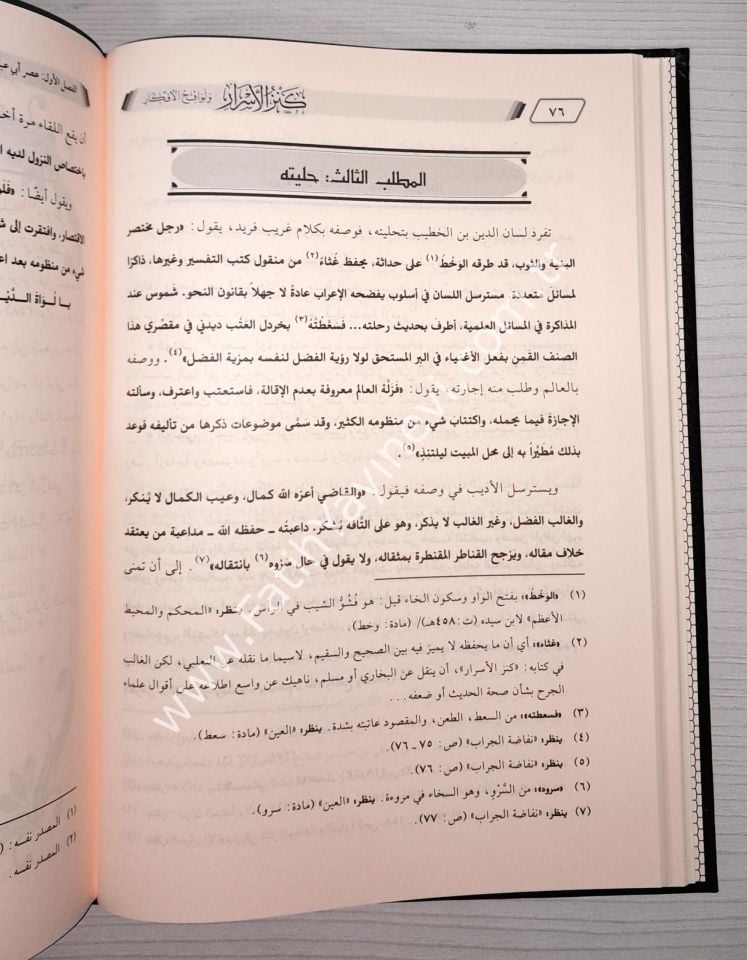 ٧٦
كنز الأسرار ولواقح الأفكار
المطلب الثالث: حليته
تفرد لسان الدين بن الخطيب بتحليته، فوصفه بكلام غريب فريد، يقول: «رجل مختصر
البنية والثوب، قد طرقه الوَخْطُ(١) على حداثة، يحفظ غُثاءً(٢) من منقول كتب التفسير وغيرها، ذاكرًا
لمسائل متعددة، مسترسل اللسان في أسلوب يفضحه الإعراب عادةً لا جهلاً بقانون النحو. شموس عند
المذاكرة في المسائل العلمية، أطرفَ بحديث رحلته... فَسَعَطْتُهُ(٣) بخردل العَتْب ديدني في مقصِّري هذا
الصنف القَمِن بفعل الأغنياء في البر المستحق لولا رؤية الفضل لنفسه بمزية الفضل»(٤). ووصفه
بالعالم وطلب منه إجازته، يقول: «فَزلَّة العالم معروفة بعدم الإقالة، فاستعتب واعترف، وسألته
الإجازةَ فيما يحمله، واكتتابَ شيء من منظومه الكثير، وقد سَمَّى موضوعات ذكرها من تآليفه فوعد
بذلك مُطَيَّراً به إلى محل المبيت ليلتئذٍ»(٥).
ويسترسل الأديب في وصفه فيقول: «والقاضي أعزه الله كمال، وعيب الكمال لا يُنكر،
والغالب الفضل، وغير الغالب لا يذكر، وهو على التَّافه يُشكر. داعبتُه ـ حفظه الله ـ مداعبة من يعتقد
خلاف مقاله، ويَرْجح القناطر المقنطرة بمثقاله، ولا يقول في حال سَرْوِه(٦) بانتقاله»(٧). إلى أن تمنى
(١) «الوَخْطُ»: بفتح الواو وسكون الخاء قيل: هو فُشُوُّ الشيب في الرأس. ينظر: «المحكم والمحيط
الأعظم» لابن سيده (ت:٤٥٨هـ)/ (مادة: وخط).
(٢) «غثاء»: أي أن ما يحفظه لا يميز فيه بين الصحيح والسقيم، لاسيما ما نقله عن الثعلبي، لكن الغالب
في كتابه: «كنز الأسرار»، أن ينقل عن البخاري أو مسلم، ناهيك عن واسع اطلاعه على أقوال علماء
الجرح بشأن صحة الحديث أو ضعفه...
(٣) «فسعطته»: من السعط، الطعن، والمقصود عاتبته بشدة. ينظر: «العين» (مادة: سعط).
(٤) ينظر: «نفاضة الجراب» (ص: ٧٥ ـ ٧٦).
(٥) ينظر: «نفاضة الجراب» (ص: ٧٦).
(٦) «سروه»: من السَّرْوِ، وهو السخاء في مروءة. ينظر: «العين» (مادة: سرو).
(٧) ينظر: «نفاضة الجراب» (ص: ٧٧).
الفصل الأول: عصر أبي
أن يقع اللقاء مرة
باختصاص النزول لديه
ويقول أيضًا:
الاقتصار، وافتقرت إلى
شيء من منظومه بعد
(١) المصدر نفسه:
(٢) المصدر نفسه.
www.FatihYayinevi.com.tr